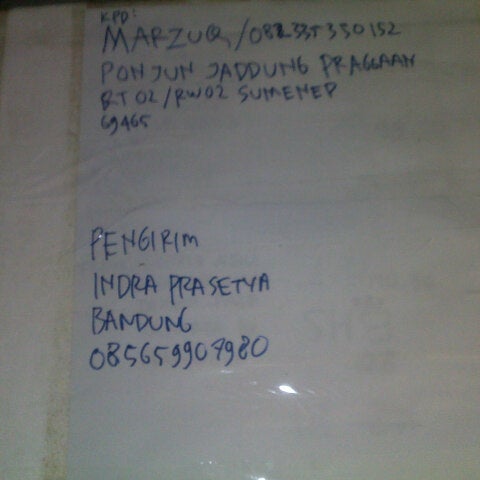 KPD:
MARZUQ/082335350152
PONJUN JADDUNG PRAGGAAN
RT 02/RW02 SUMENEP
69465
PENGIRIM
INDRA PRASETYA
BANDUNG
085659907980